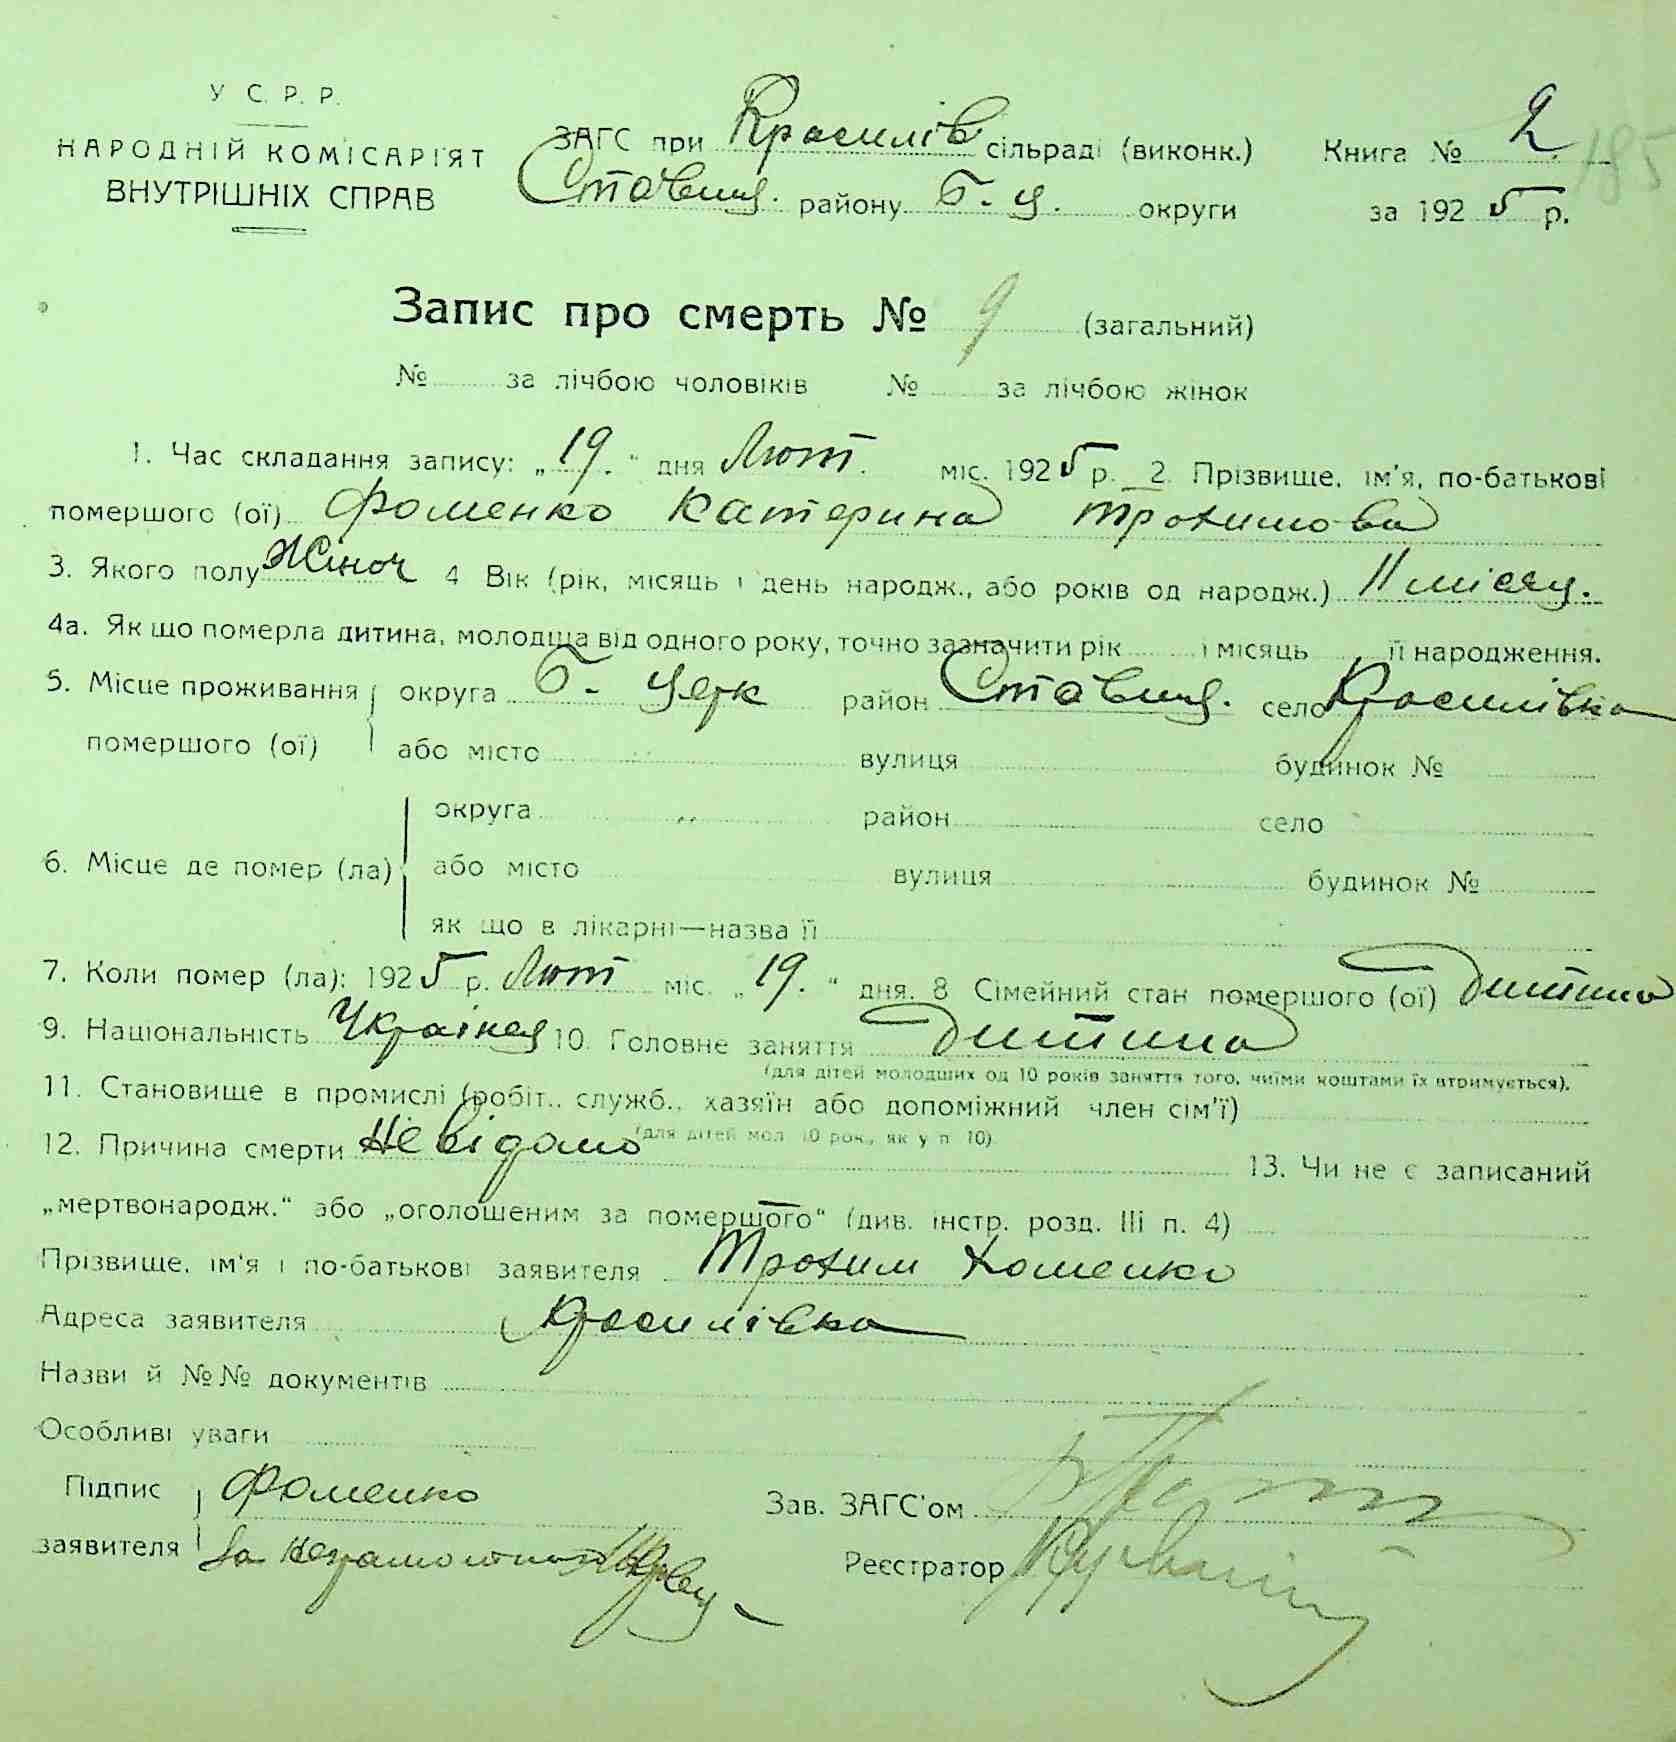 У С. Р. Р.
НАРОДНІЙ КОМІСАРІЯТ
ВНУТРІШНІХ СПРАВ
ЗАГС при Красилів сільраді (виконк.)
Ставищ. району Б. Ц. округи
Книга № 2
185
за 1925 р.
Запис про смерть № 9 (загальний)
№ за лічбою чоловіків № за лічбою жінок
1. Час складання запису: „19.“ дня Лют. міс. 1925 р. 2. Прізвище, ім'я, по-батькові
помершого (ої) Фоменко Катерина Трохимова
3. Якого полу Жіноч 4 Вік (рік, місяць і день народж., або років од народж.) 11 місяц.
4а. Як що померла дитина, молодща від одного року, точно зазначити рік і місяць її народження.
5. Місце проживання округа Б. Церк район Ставищ. село Красилівка
помершого (ої) або місто вулиця будинок №
округа „ район село
6. Місце де помер (ла) або місто вулиця будинок №
як що в лікарні—назва її
7. Коли помер (ла): 1925 р. Лют міс. „19.“ дня. 8 Сімейний стан помершого (ої) Дитина
9. Національність Україн 10. Головне заняття Дитина
(для дітей молодших од 10 років заняття того, чиїми коштами їх втримується).
11. Становище в промислі (робіт., служб., хазяїн або допоміжний член сім'ї)
(для дітей мол 10 рок., як у п 10).
12. Причина смерти Невідомо 13. Чи не є записаний
„мертвонародж.“ або „оголошеним за помершого“ (див. інстр. розд. III п. 4)
Прізвище, ім'я і по-батькові заявителя Трохим Хоменко
Адреса заявителя Красилівка
Назви й №№ документів
Особливі уваги
Підпис Фоменко Зав. ЗАГС'ом
заявителя За Реєстратор